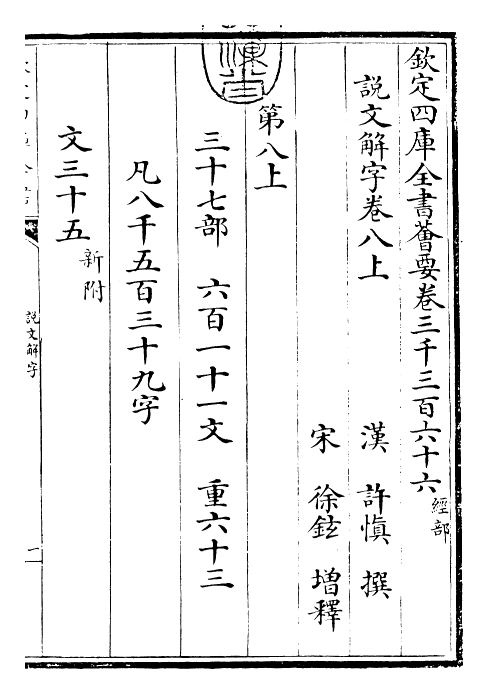 欽定四庫全書薈要卷三千三百六十六 經部
說文解字卷八上
漢 許慎 撰
宋 徐鉉 增釋
第八上
三十七部 六百一十一文 重六十三
凡八千五百三十九字
文三十五 新附
說文解字